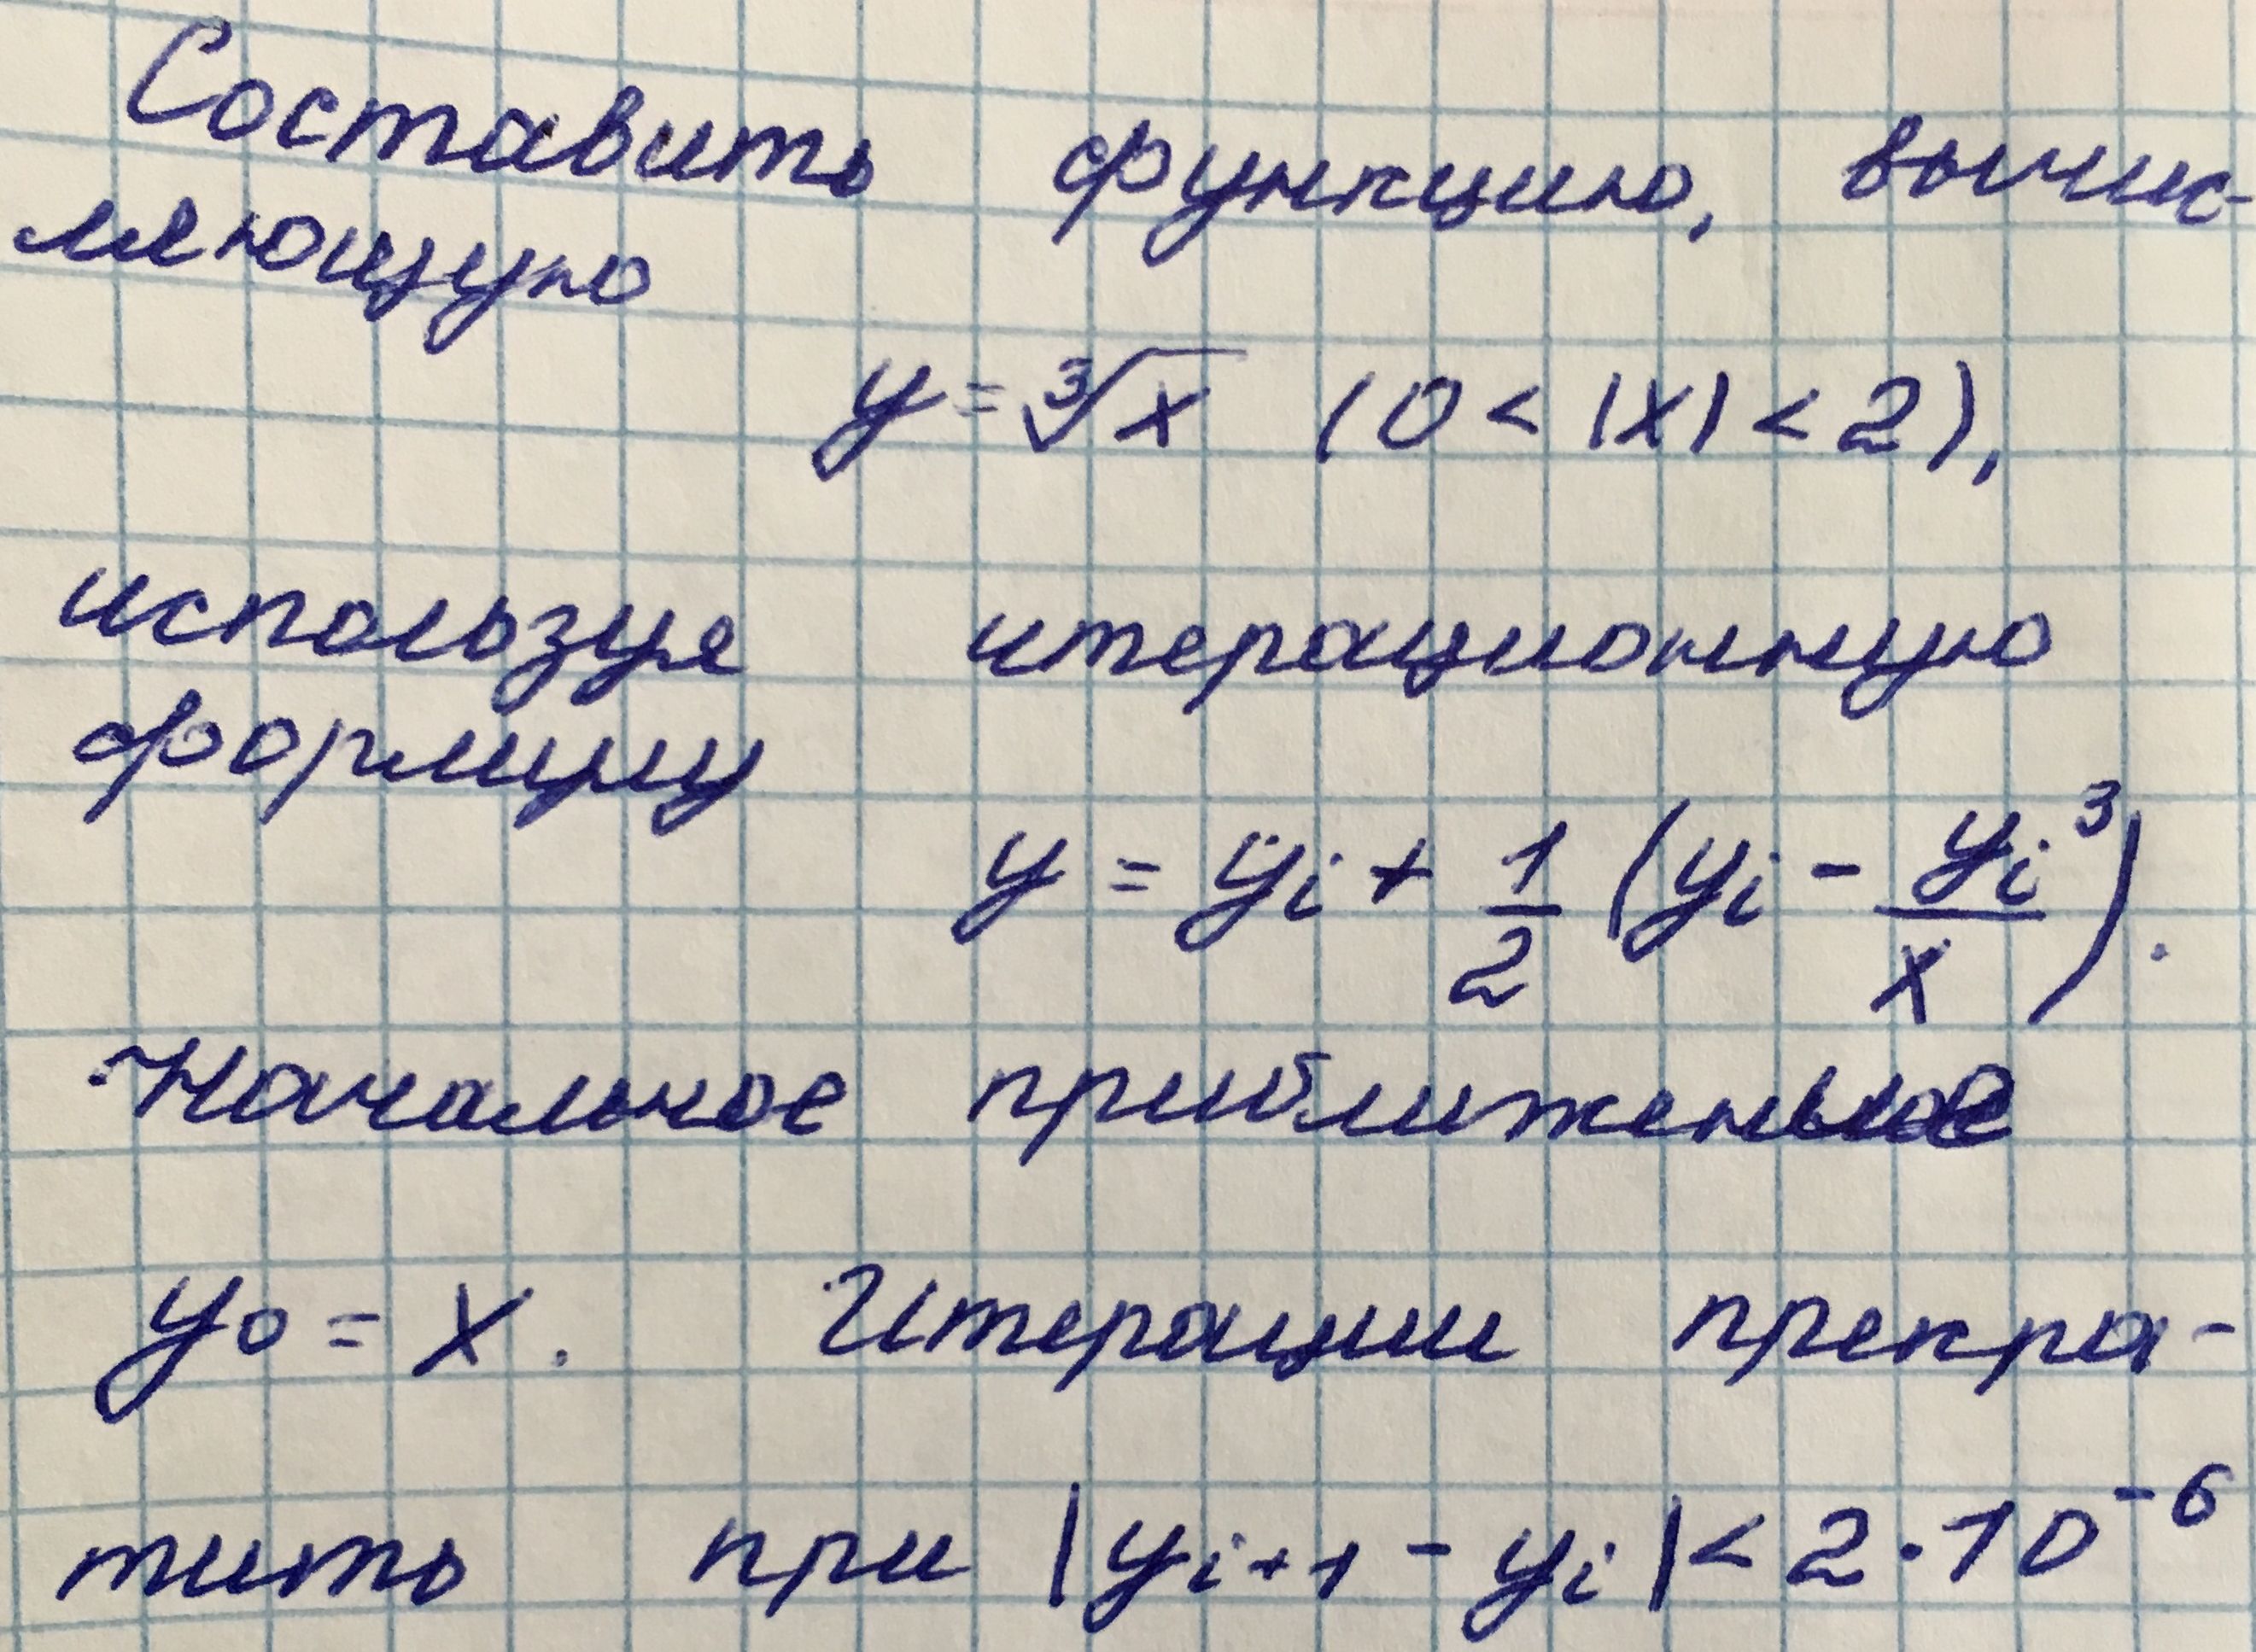 Составить функцию, вычис-
ляющую
y = ∛x (0 < |x| < 2),
используя итерационную
формулу
y = yᵢ + 1/2 (yᵢ - yᵢ³/x).
Начальное приближение
y₀ = x. Итерации прекра-
тить при |yᵢ₊₁ - yᵢ| < 2·10⁻⁶